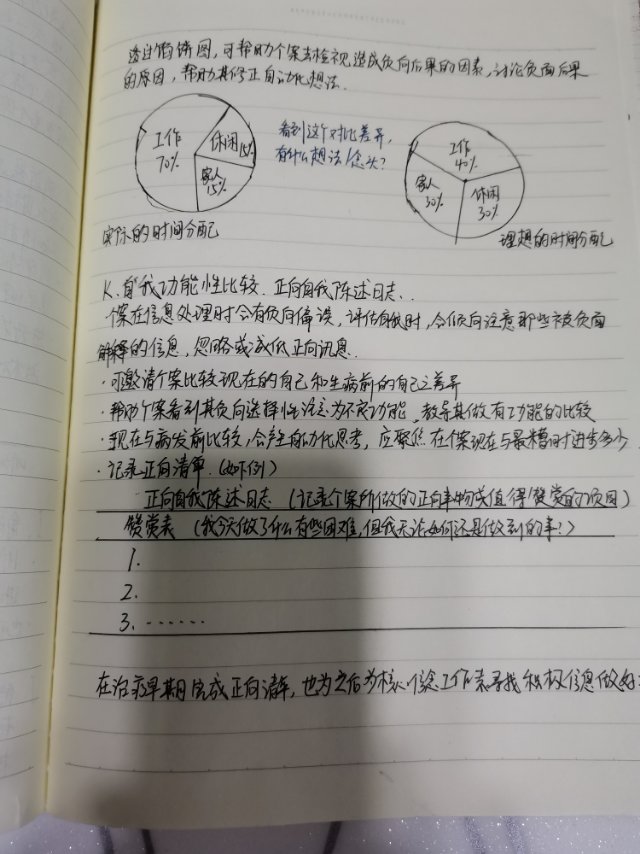 透过馅饼图，可帮助个案去检视造成负向后果的因素，讨论负面后果
的原因，帮助其修正自动化想法.
工作
70%
休闲
15%
家人
15%
看到这个对比差异，
有什么想法/念头？
工作
40%
家人
30%
休闲
30%
实际的时间分配
理想的时间分配
K、自我功能性比较、正向自我陈述日志、.
个案在信息处理时会有负向偏误，评估自我时，会倾向注意那些被负面
解释的信息，忽略或减低正向讯息.
·可邀请个案比较现在的自己和生病前的自己之差异
·帮助个案看到其负向选择性注意为不良功能、教导其做有功能的比较
·现在与病发前比较，会产生自动化思考，应聚焦在个案现在与最糟时进步多少
·记录正向清单（如下例）
正向自我陈述日志（记录个案所做的正向事物或值得赞赏的原因）
赞赏表（我今天做了什么有些困难，但我无论如何还是做到的事？）
1.
2.
3. ......
在治疗早期完成正向清单，也为之后为核心信念工作表寻找积极信息做好